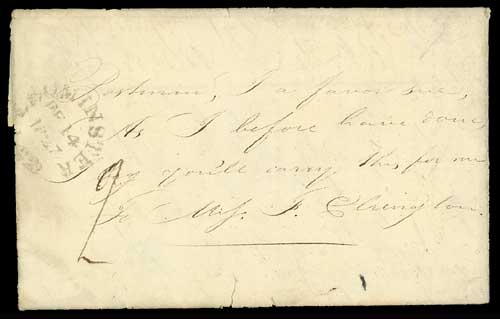 LEOMINSTER
DE 14
1827
Postman, I a favor sue,
As I before have done,
I beg you'll carry this for me
To Miss Elrington.